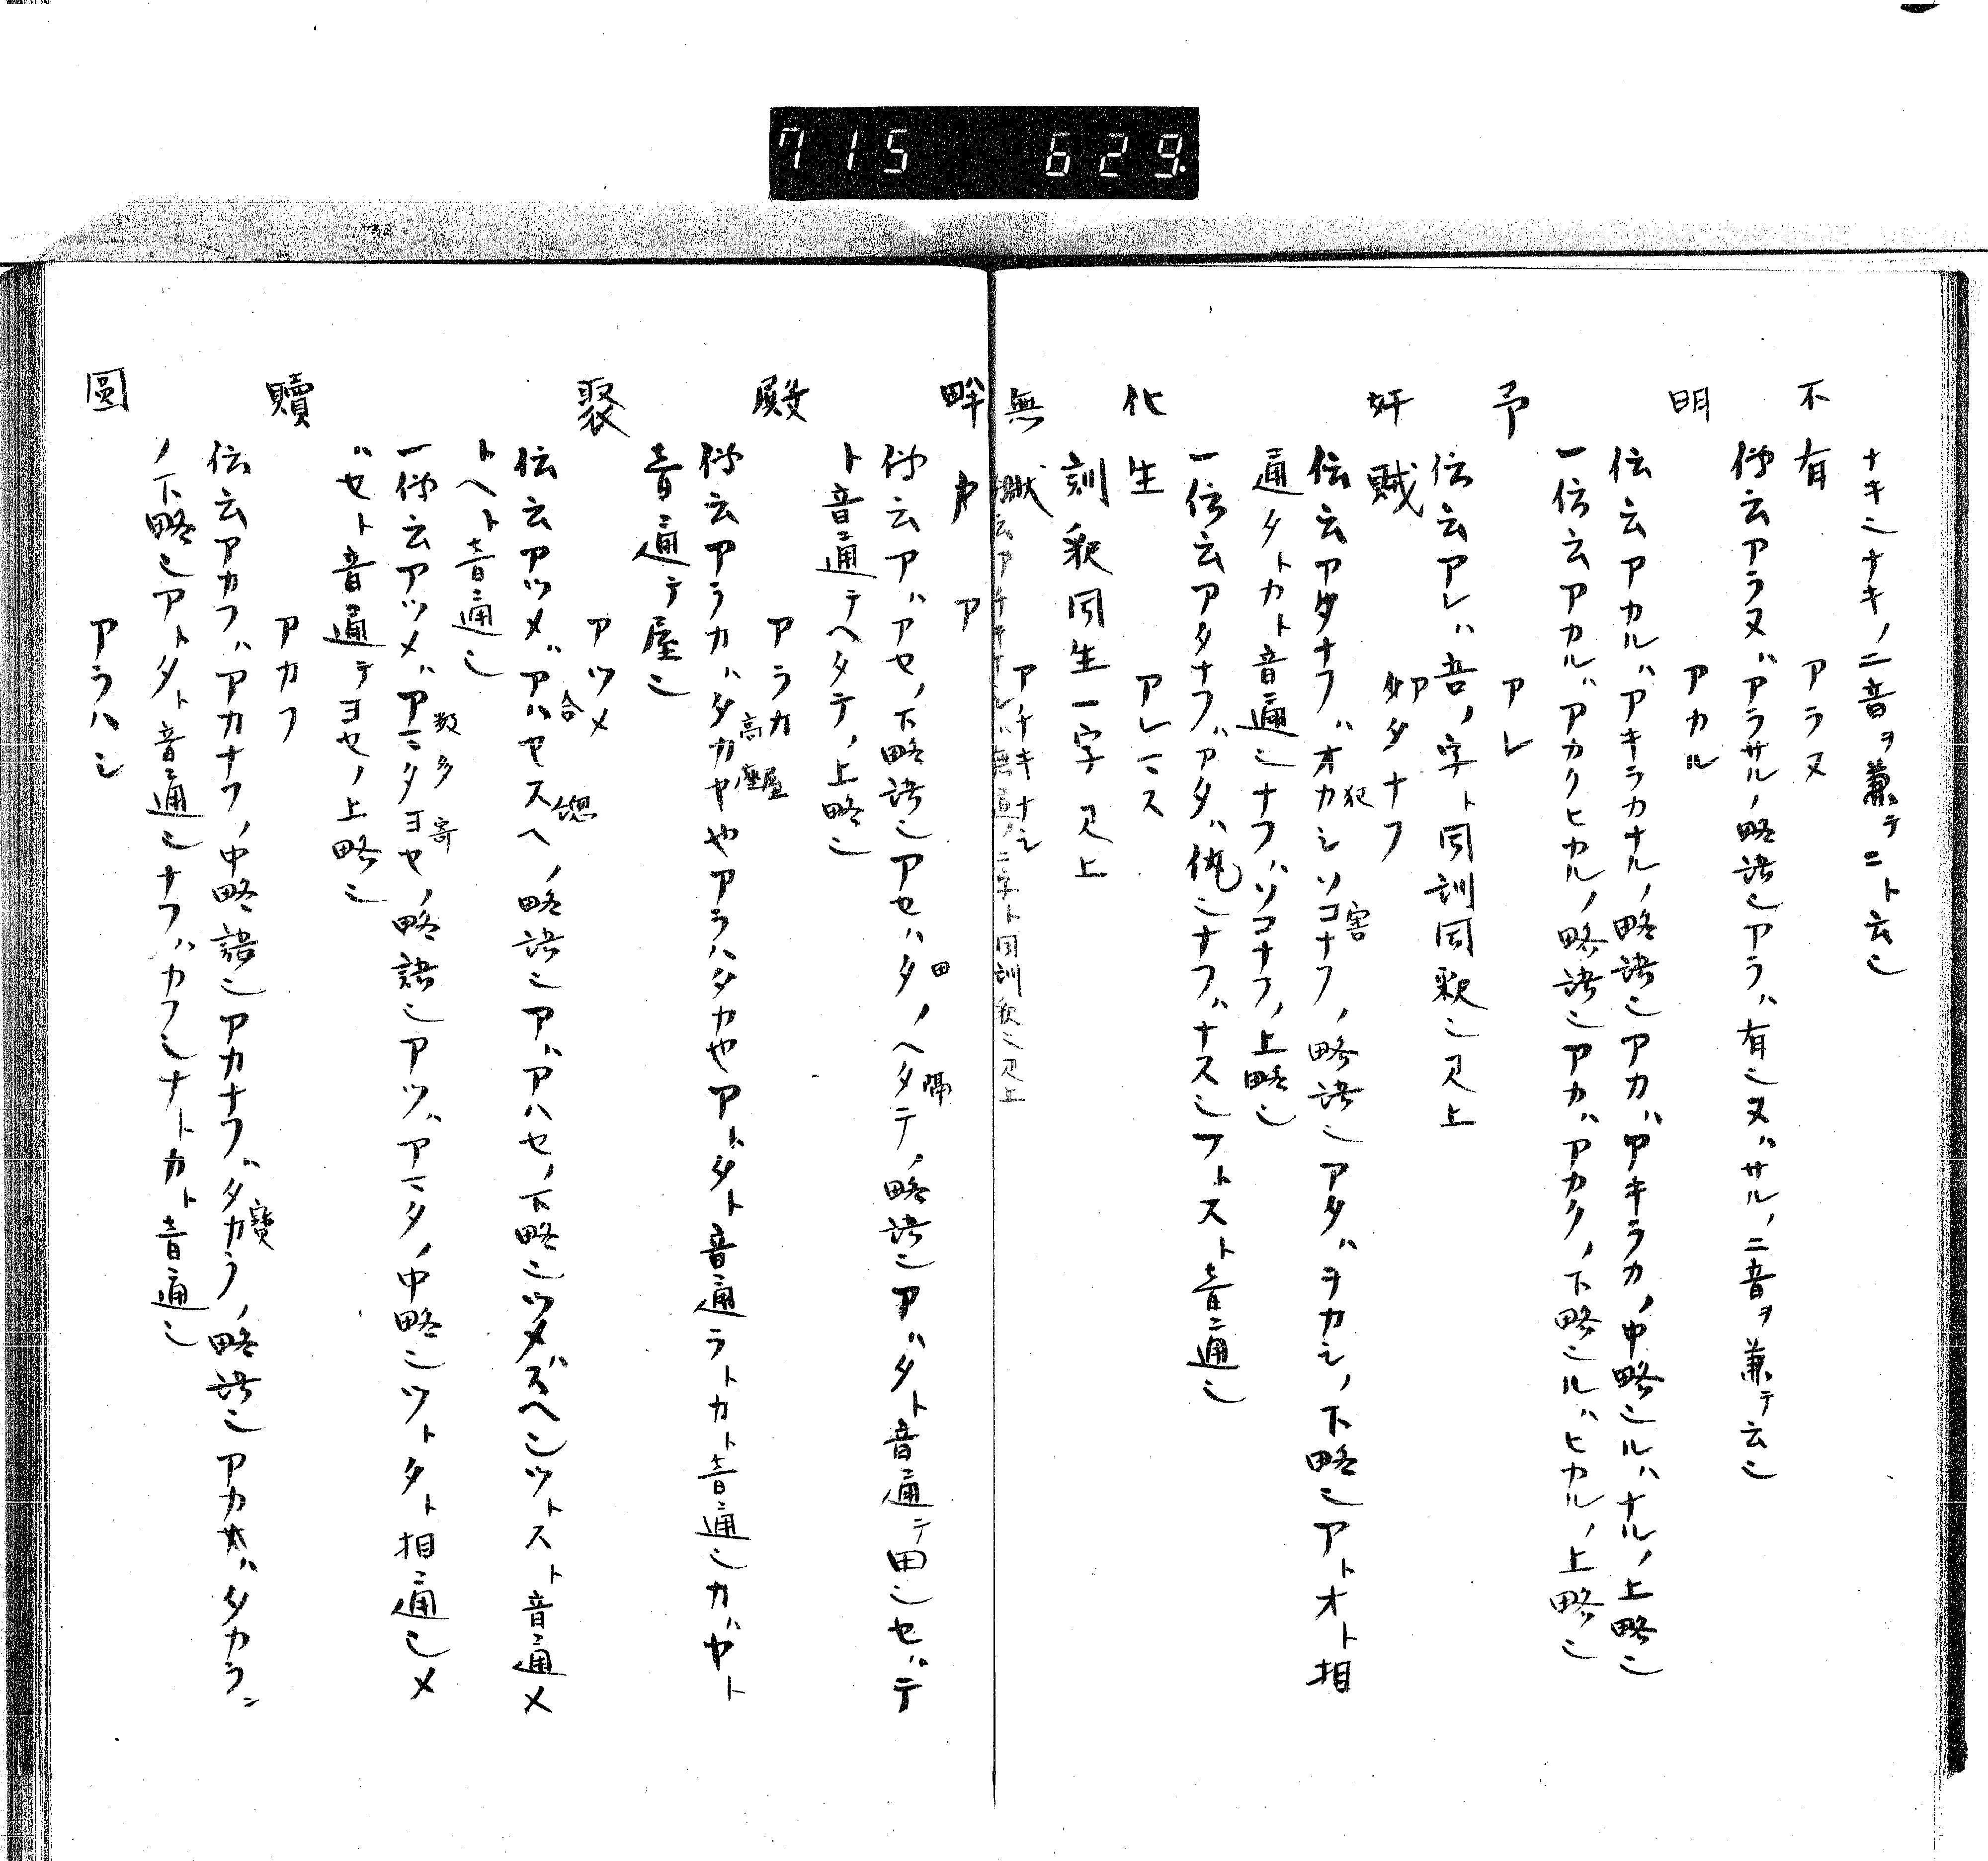 715 629
ナキ也ナキノ二音ヲ兼テニト云也
不有 アラヌ
伝云アラヌハアラサルノ略語也アラハ有也ヌハサルノ二音ヲ兼テ云也
明 アカル
伝云アカルハアキラカナルノ略語也アカハアキラカノ中略也ルハナルノ上略也
一伝云アカルハアカクヒカルノ略語也アカハアカクノ下略也ルハヒカルノ上略也
予 アレ
伝云アレハ吾ノ字ト同訓同釈也見上
奸賊 アタナフ
伝云アタナフハオカシソコナフノ略語也アタハヲカシノ下略也アトオト相
犯 害
通タトカト音通也ナフハソコナフノ上略也
一伝云アタナフハアタハ仇也ナフハナス也フトスト音通也
化生 アレマス
訓釈同生一字見上
無状 アチキナシ
畔 ア
伝云アハアセノ下略語也アセハタノヘタテノ略語也アハタト音通テ田也セハテ
田 隔
ト音通テヘタテノ上略也
殿 アラカ
伝云アラカハタカヤヤアラハタカヤアトタト音通ラトカト音通也カハヤト
高屋
音通テ屋也
聚 アツメ
伝云アツメハアハセスヘノ略語也アハアハセノ下略也ツメハスヘ也ツトスト音通メ
合 惣
トヘト音通也
一伝云アツメハアマタヨセノ略語也アツハアマタノ中略也ツトタト相通也メ
数多 寄
ハセト音通テヨセノ上略也
贖 アカフ
伝云アカフハアカナフノ中略語也アカナフハタカラノ略語也アカハタカラ
寶
ノ下略也アトタト音通也ナフハカフ也ナトカト音通也
圓 アラハシ